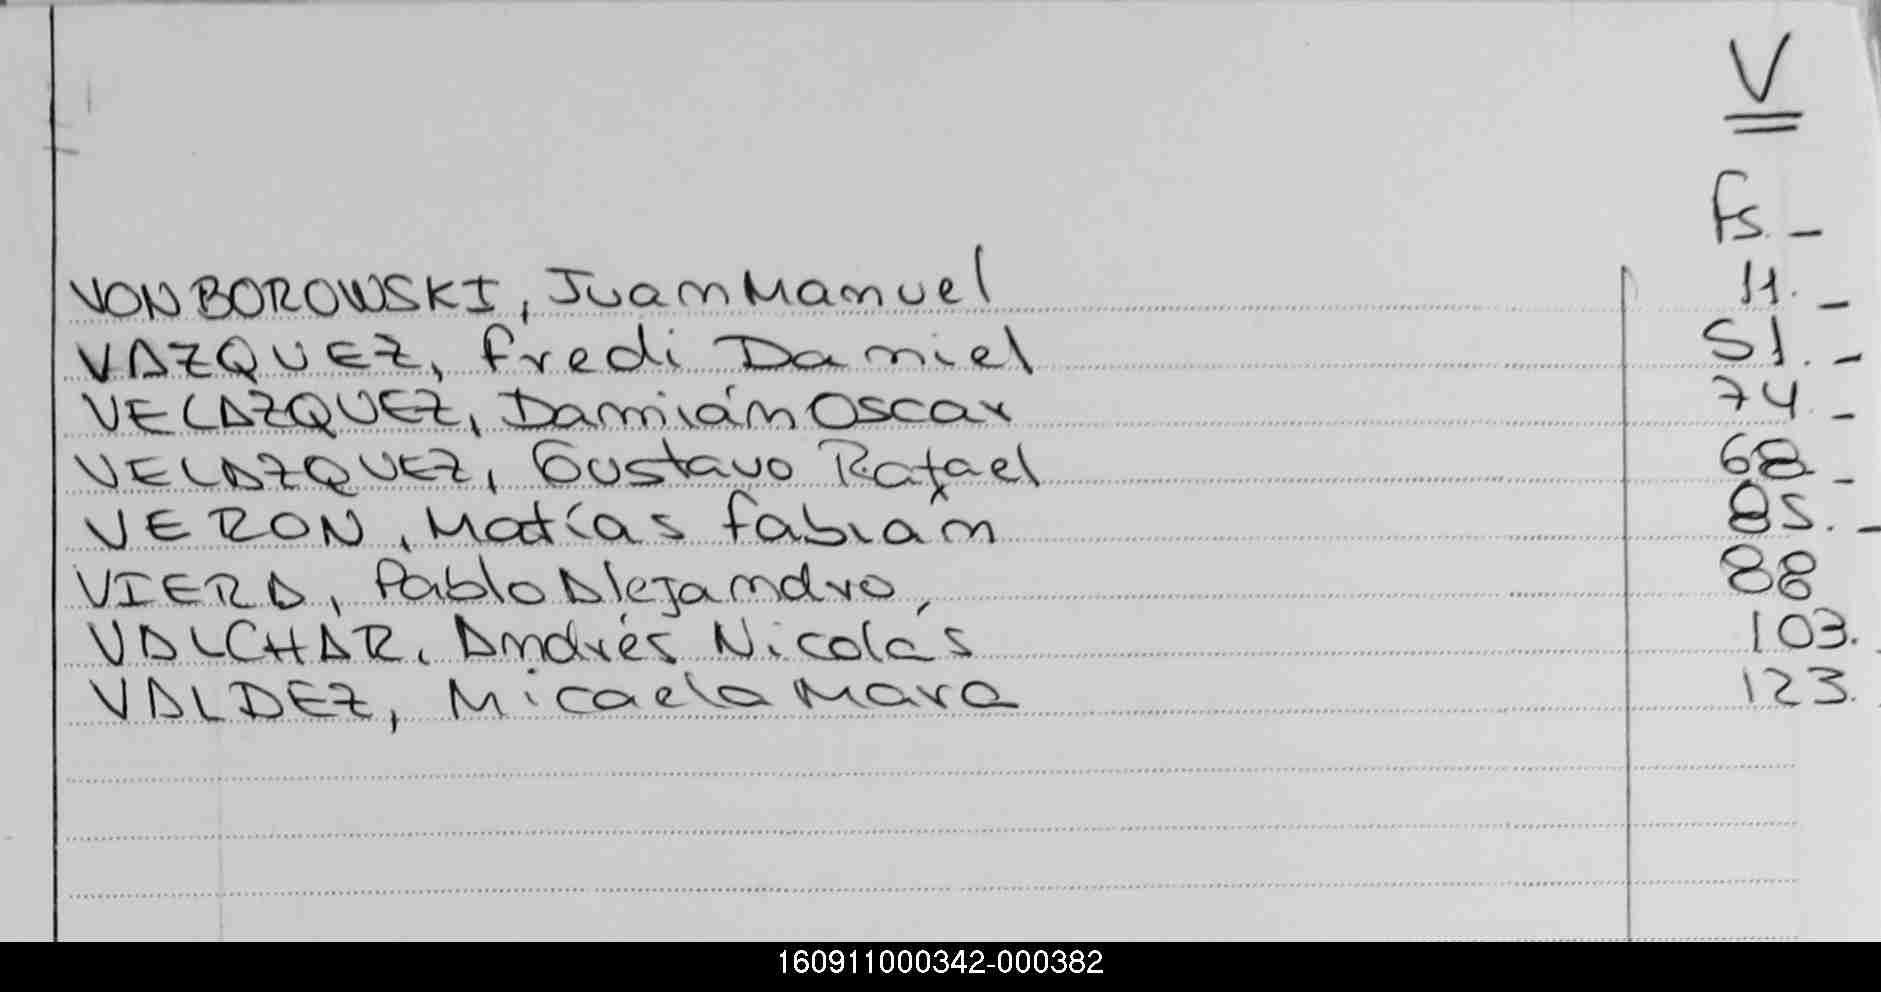 V
Fs. -
VON BOROWSKI, Juan Manuel 11. -
VAZQUEZ, Fredi Daniel 51. -
VELAZQUEZ, Damián Oscar 74. -
VELAZQUEZ, Gustavo Rafael 68 -
VERON, Matías Fabián 85. -
VIERA, Pablo Alejandro, 88
VALCHAR, Andrés Nicolás 103.
VALDEZ, Micaela Mara 123.
160911000342-000382